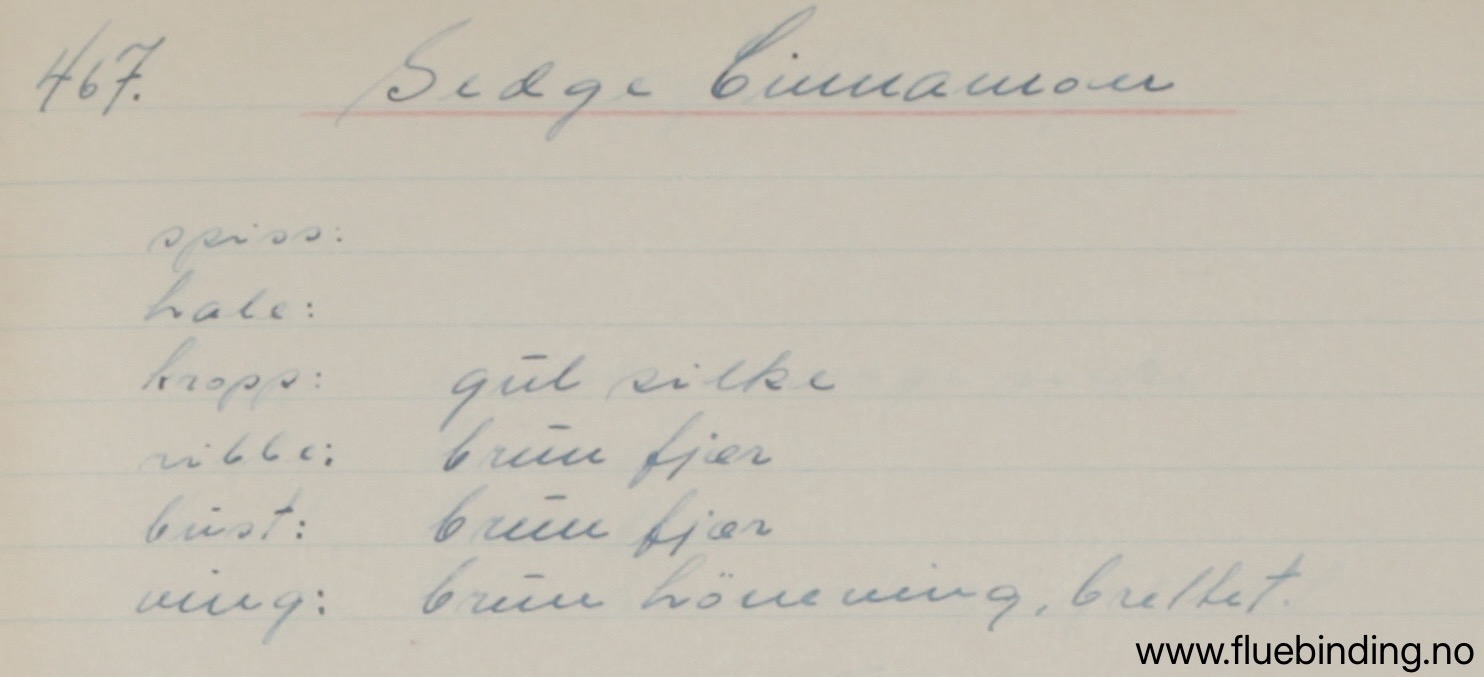 467. Sedge Cinnamon
spiss:
hale:
kropp: gul silke
ribbe: brun fjær
bust: brun fjær
ving: brun höneving, brettet.
www.fluebinding.no